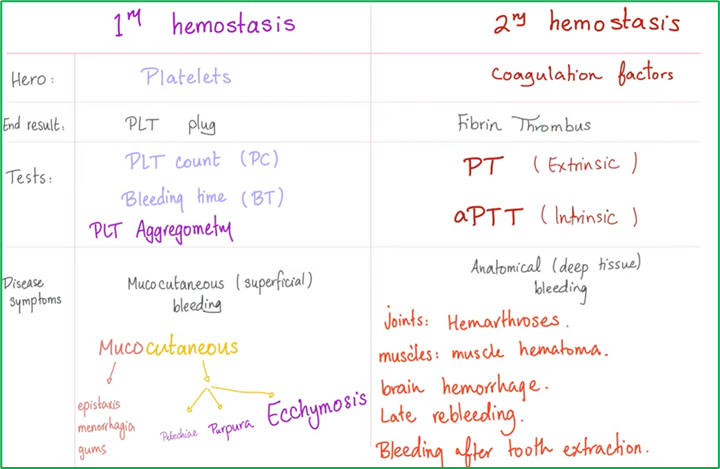 1ry hemostasis 2ry hemostasis
Hero: Platelets Coagulation factors
End result: PLT plug Fibrin Thrombus
Tests: PLT count (PC) PT (Extrinsic)
Bleeding time (BT) aPTT (Intrinsic)
PLT Aggregometry
Disease symptoms Mucocutaneous (superficial) bleeding Anatomical (deep tissue) bleeding
Mucocutaneous
epistaxis
menorrhagia
gums
Petechiae Purpura Ecchymosis
joints: Hemarthroses.
muscles: muscle hematoma.
brain hemorrhage.
Late rebleeding.
Bleeding after tooth extraction.